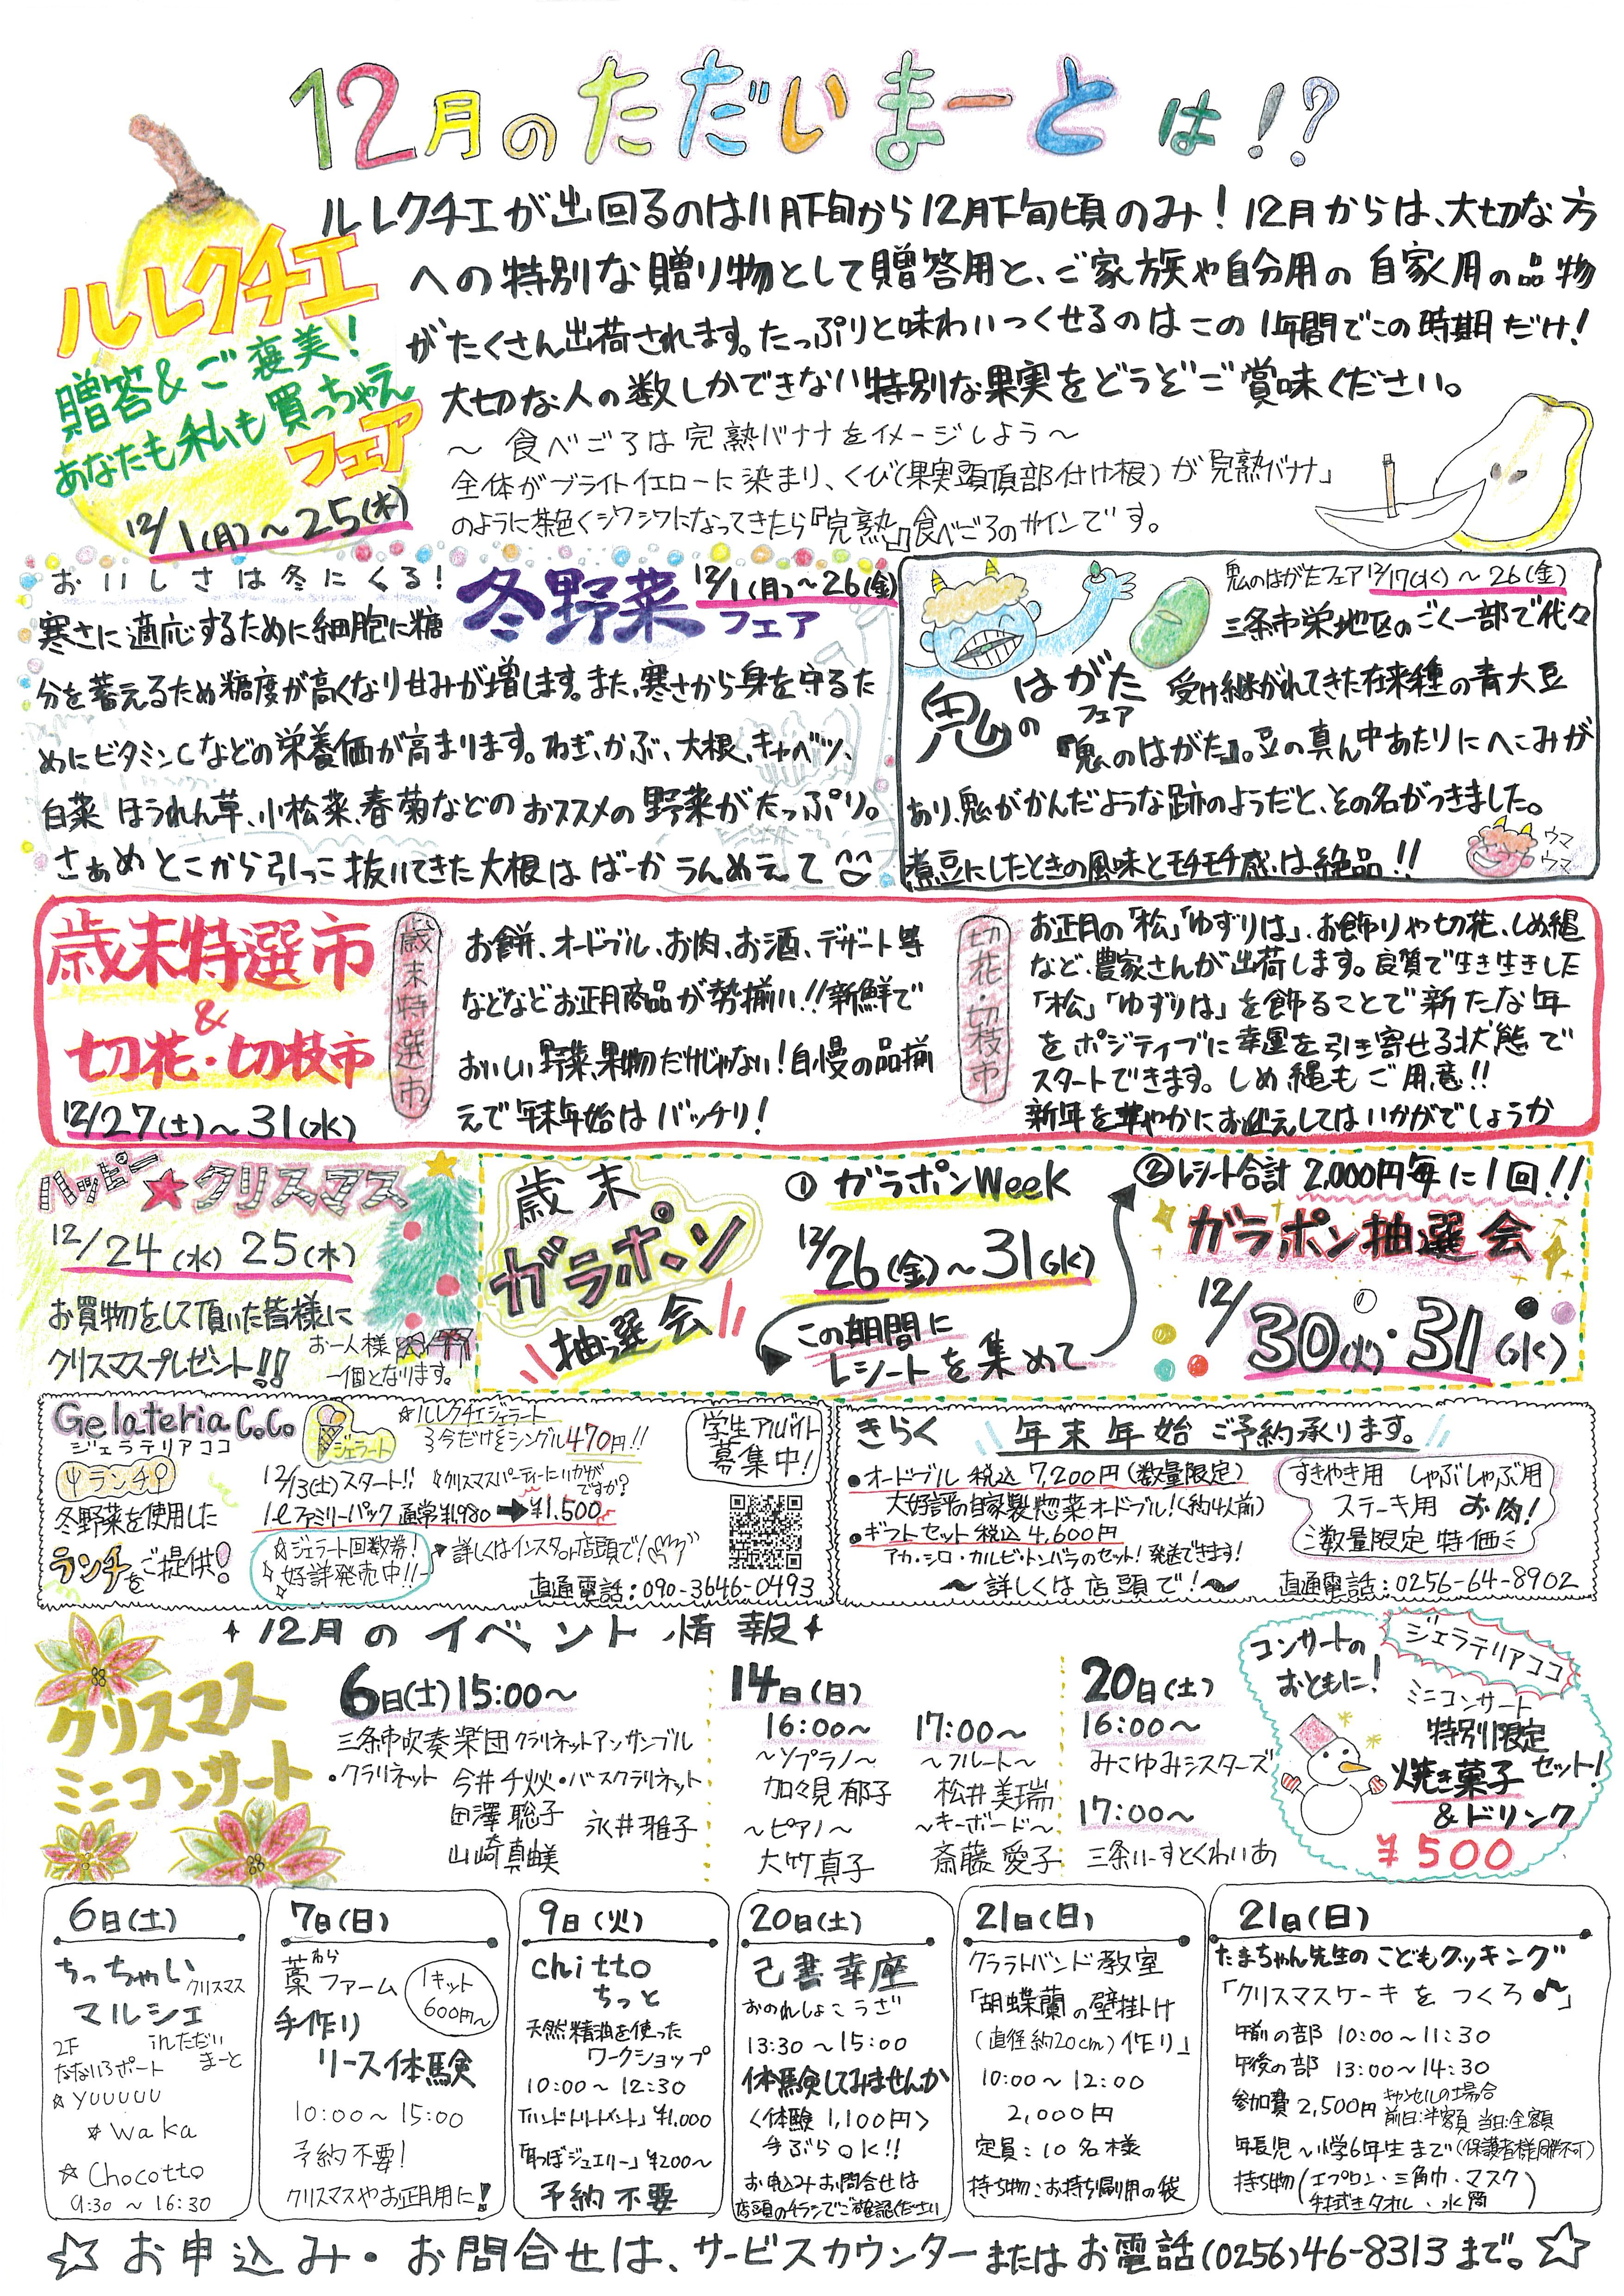 12月のただいまーとは!?
ルレクチエが出回るのは11月下旬から12月下旬頃のみ!12月からは、大切な方
への特別な贈り物として贈答用と、ご家族や自分用の自家用の品物
がたくさん出荷されます。たっぷりと味わいつくせるのはこの1年間でこの時期だけ!
大切な人の数しかできない特別な果実をどうぞご賞味ください。
ルレクチエ
贈答&ご褒美!
あなたも私も買っちゃえ
フェア
12/1(月)~25(木)
~食べごろは完熟バナナをイメージしよう~
全体がブライトイエローに染まり、くび(果実頭頂部付け根)が「完熟バナナ」
のように茶色くシワシワになってきたら『完熟』食べごろのサインです。
おいしさは冬にくる!
冬野菜フェア
12/1(月)~26(金)
寒さに適応するために細胞に糖
分を蓄えるため糖度が高くなり甘みが増します。また、寒さから身を守るた
めにビタミンCなどの栄養価が高まります。ねぎ、かぶ、大根、キャベツ、
白菜 ほうれん草、小松菜、春菊などのおススメの野菜がたっぷり。
さぁめとこから引っこ抜いてきた大根はばーかうんめぇて
鬼のはがたフェア12/17(水)~26(金)
鬼のはがた
フェア
三条市栄地区のごく一部で代々
受け継がれてきた在来種の青大豆
『鬼のはがた』。豆の真ん中あたりにへこみが
あり、鬼がかんだような跡のようだと、その名がつきました。
煮豆にしたときの風味とモチモチ感は絶品!!
ウマ
ウマ
歳末特選市
&
切花・切枝市
12/27(土)~31(水)
歳末特選市
お餅、オードブル、お肉、お酒、デザート等
などなどお正月商品が勢揃い!!新鮮で
おいしい野菜、果物だけじゃない!自慢の品揃
えで年末年始はバッチリ!
切花・切枝市
お正月の「松」「ゆずりは」、お飾りや切花、しめ縄
など、農家さんが出荷します。良質で生き生きした
「松」「ゆずりは」を飾ることで新たな年
をポジティブに幸運を引き寄せる状態で
スタートできます。しめ縄もご用意!!
新年を華やかにお迎えしてはいかがでしょうか
ハッピー★クリスマス
12/24(水) 25(木)
お買物をして頂いた皆様に
クリスマスプレゼント!!
お一人様
一個となります。
歳末
ガラポン
抽選会
①ガラポンWeeK
12/26(金)~31(水)
この期間に
レシートを集めて
②レシート合計2,000円毎に1回!!
ガラポン抽選会
12/30(火)・31(水)
Gelateria CoCo
ジェラテリアココ
ランチ
冬野菜を使用した
ランチをご提供!
ジェラート
☆ルレクチエジェラート
今だけをシングル470円!!
12/13(土)スタート!!
☆クリスマスパーティーにいかが
ですか?
1ℓファミリーパック 通常¥1,980➡¥1,500
☆ジェラート回数券!
好評発売中!!
詳しくはインスタor店頭で!
学生アルバイト
募集中!
直通電話:090-3646-0493
きらく 年末年始ご予約承ります。
●オードブル 税込7,200円(数量限定)
大好評の自家製惣菜オードブル!(約4人前)
●ギフトセット 税込4,600円
アカ・シロ・カルビ・トンバラのセット!発送できます!
~詳しくは店頭で!~
すきやき用 しゃぶしゃぶ用
ステーキ用 お肉!
数量限定 特価
直通電話:0256-64-8902
12月のイベント情報
クリスマス
ミニコンサート
6日(土)15:00~
三条市吹奏楽団クラリネットアンサンブル
・クラリネット 今井千
田澤聡子
山崎真由美
・バスクラリネット
永井雅子
14日(日)
16:00~
~ソプラノ~
加々見郁子
~ピアノ~
大竹真子
17:00~
~フルート~
松井美瑞
~キーボード~
斎藤愛子
20日(土)
16:00~
みこゆみシスターズ
17:00~
三条いーすとくわいあ
コンサートの
おともに!
ジェラテリアココ
ミニコンサート
特別限定
焼き菓子セット!
&ドリンク
¥500
6日(土)
ちっちゃい
クリスマス
マルシェ
inただい
まーと
2F
なないろポート
☆YUUUUU
☆Waka
☆Chocotto
9:30~16:30
7日(日)
わら
藁ファーム
1キット
600円~
手作り
リース体験
10:00~15:00
予約不要!
クリスマスやお正月用に!
9日(火)
chitto
ちっと
天然精油を使った
ワークショップ
10:00~12:30
「ハンドトリートメント」¥1,000
「耳つぼジュエリー」¥200~
予約不要
20日(土)
己書幸座
おのれしょこうざ
13:30~15:00
体験してみませんか
<体験1,100円>
手ぶらOK!!
お申込みお問合せは
店頭のチラシでご確認ください
21日(日)
クラフトバンド教室
「胡蝶蘭の壁掛け
(直径約20cm)作り」
10:00~12:00
2,000円
定員:10名様
持ち物:お持ち帰り用の袋
21日(日)
たまちゃん先生のこどもクッキング
「クリスマスケーキをつくろ♪」
午前の部 10:00~11:30
午後の部 13:00~14:30
参加費2,500円
キャンセルの場合
前日:半額 当日:全額
年長児~小学6年生まで(保護者様同伴不可)
持ち物(エプロン・三角巾・マスク
手拭きタオル・水筒)
☆お申込み・お問合せは、サービスカウンターまたはお電話(0256)46-8313まで。☆